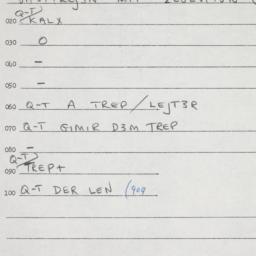 Q-T
020 KALX
030 O
040 –
050 –
060 Q-T A TREP/LEJT3R
070 Q-T GIMIR D3M TREP
080 –
Q-T
090 TREP+
100 Q-T DER LEN (909